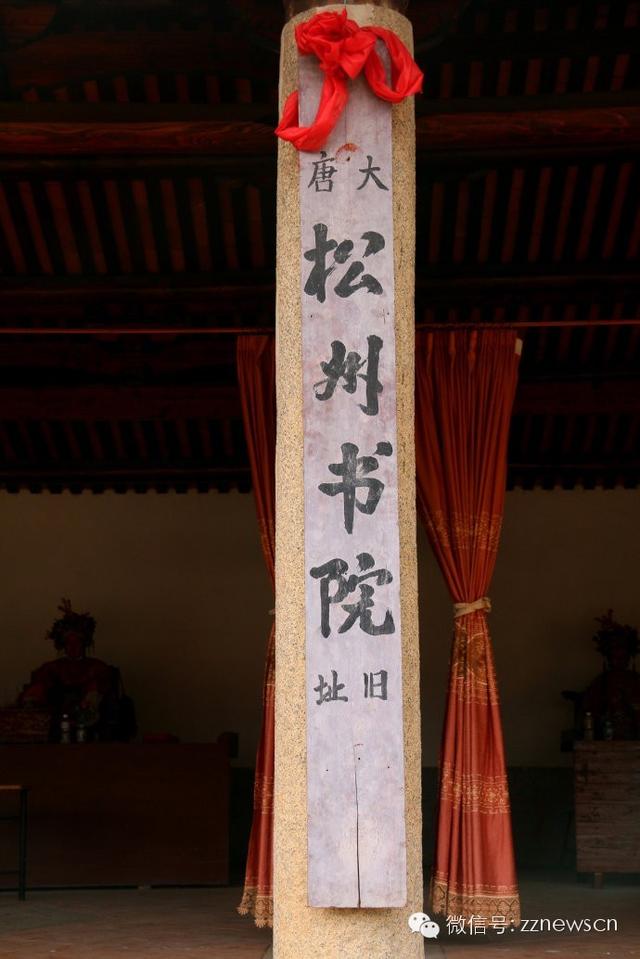 大唐
松州书院
旧址
微信号: zznewscn